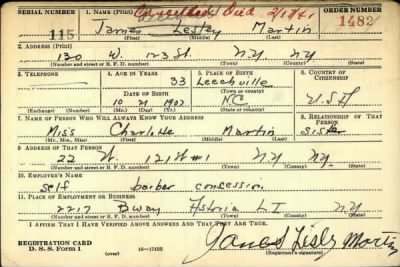 SERIAL NUMBER 1. NAME (Print) Cancelled Died 2/1/41 ORDER NUMBER
115 James Lesley Martin 1482
(First) (Middle) (Last)
2. ADDRESS (Print)
130 W. 123 St. N.Y. N.Y.
(Number and street or R. F. D. number) (Town) (County) (State)
3. TELEPHONE 4. AGE IN YEARS 5. PLACE OF BIRTH 6. COUNTRY OF CITIZENSHIP
33 Leechville
DATE OF BIRTH (Town or county)
10 21 1907 NC U.S.A
(Exchange) (Number) (Mo.) (Day) (Yr.) (State or country)
7. NAME OF PERSON WHO WILL ALWAYS KNOW YOUR ADDRESS 8. RELATIONSHIP OF THAT PERSON
Miss Charlotte Martin sister
(Mr., Mrs., Miss) (First) (Middle) (Last)
9. ADDRESS OF THAT PERSON
22 W. 121 St #1 N.Y N.Y.
(Number and street or R. F. D. number) (Town) (County) (State)
10. EMPLOYER'S NAME
self barber concession
11. PLACE OF EMPLOYMENT OR BUSINESS
2217 Bway Astoria L I N.Y
(Number and street or R. F. D. number) (Town) (County) (State)
I AFFIRM THAT I HAVE VERIFIED ABOVE ANSWERS AND THAT THEY ARE TRUE.
REGISTRATION CARD
D. S. S. Form 1 (over) 16-17105 James Lesley Martin
(Registrant's signature)